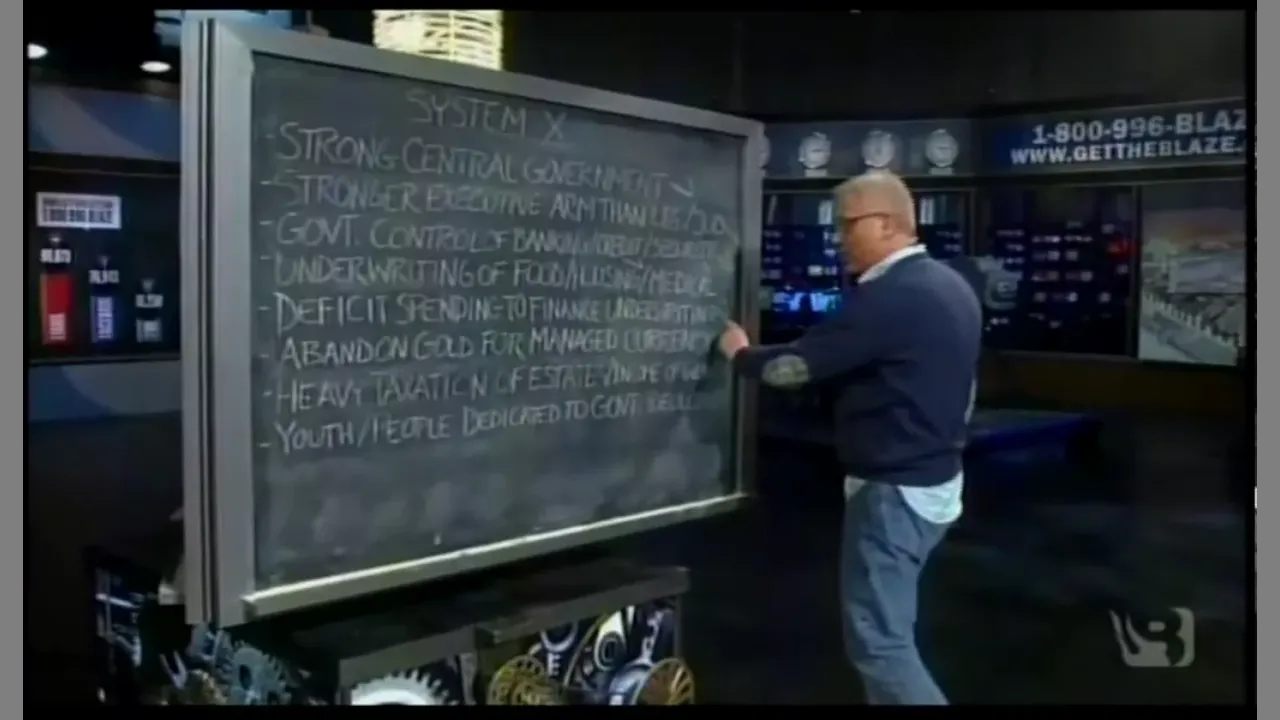 SYSTEM X
-STRONG CENTRAL GOVERNMENT
-STRONGER EXECUTIVE ARM THAN LEG/JUD
-GOVT. CONTROL OF BANKING/CREDIT/SECURITIES
-UNDERWRITING OF FOOD/HOUSING/MEDICAL
-DEFICIT SPENDING TO FINANCE UNDERWRITING
-ABANDON GOLD FOR MANAGED CURRENCY
-HEAVY TAXATION OF ESTATE/INCOME OF
-YOUTH/PEOPLE DEDICATED TO GOVT
1-800-996-BLAZ
WWW.GETTHEBLAZE.
B